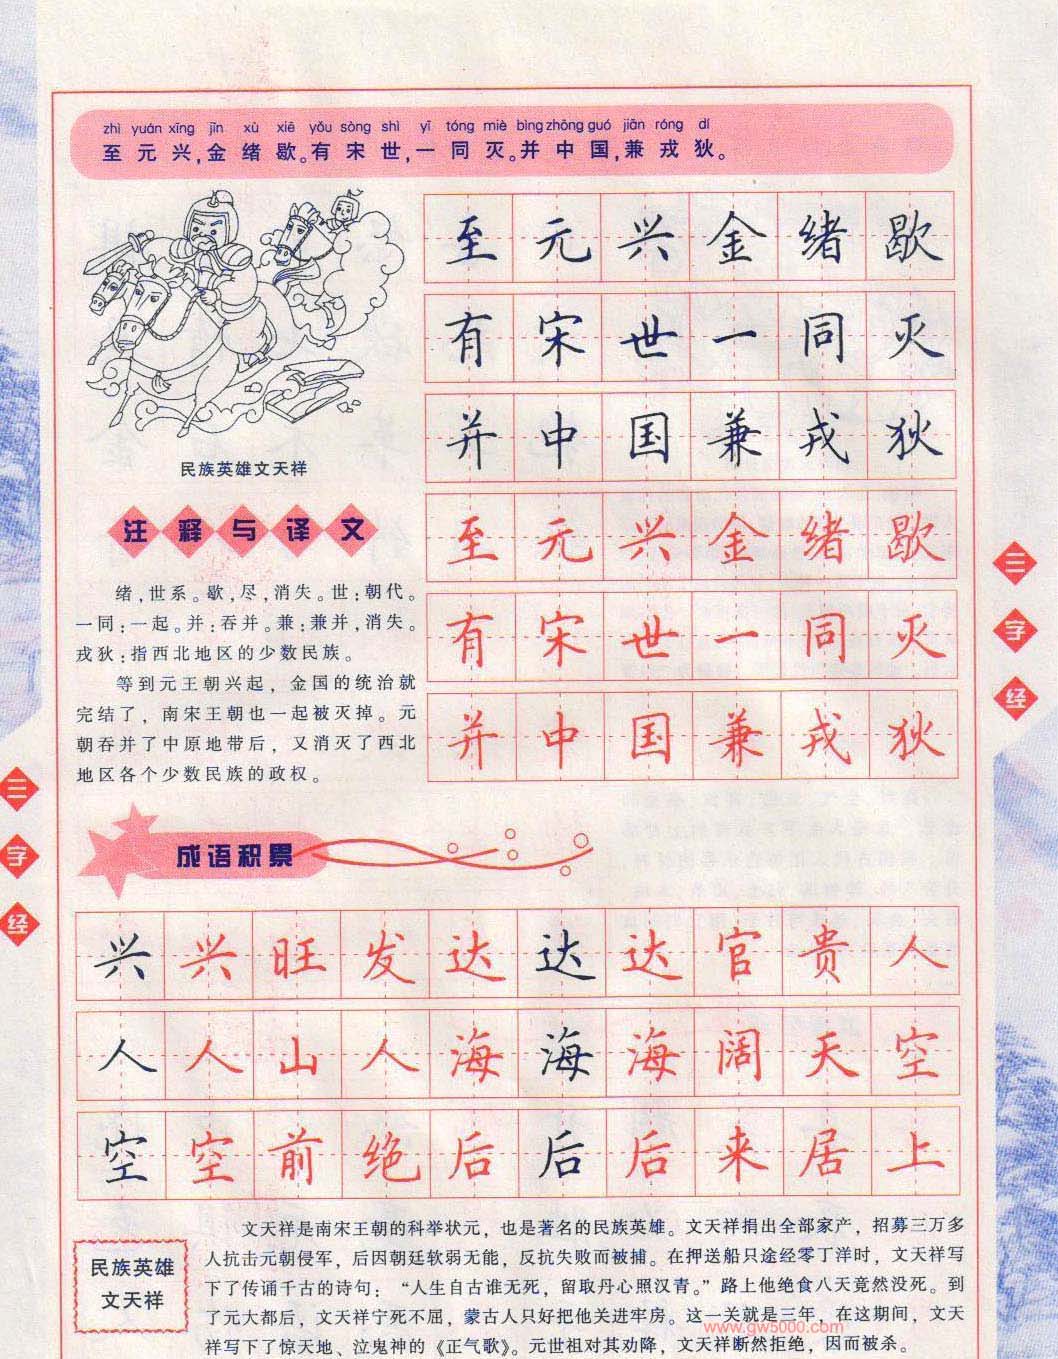 zhì yuán xīng jīn xù xiē yǒu sòng shì yī tóng miè bìng zhōng guó jiān róng dí
至元兴,金绪歇。有宋世,一同灭。并中国,兼戎狄。
至元兴金绪歇
有宋世一同灭
并中国兼戎狄
至元兴金绪歇
有宋世一同灭
并中国兼戎狄
民族英雄文天祥
注释与译文
绪,世系。歇,尽,消失。世:朝代。
一同:一起。并:吞并。兼:兼并,消失。
戎狄:指西北地区的少数民族。
等到元王朝兴起，金国的统治就
完结了，南宋王朝也一起被灭掉。元
朝吞并了中原地带后，又消灭了西北
地区各个少数民族的政权。
三字经
三字经
成语积累
兴兴旺发达达达官贵人
人人山人海海海阔天空
空空前绝后后后来居上
民族英雄
文天祥
文天祥是南宋王朝的科举状元，也是著名的民族英雄。文天祥捐出全部家产，招募三万多
人抗击元朝侵军，后因朝廷软弱无能，反抗失败而被捕。在押送船只途经零丁洋时，文天祥写
下了传诵千古的诗句：“人生自古谁无死，留取丹心照汗青。”路上他绝食八天竟然没死。到
了元大都后，文天祥宁死不屈，蒙古人只好把他关进牢房。这一关就是三年。在这期间，文天
祥写下了惊天地、泣鬼神的《正气歌》。元世祖对其劝降，文天祥断然拒绝，因而被杀。
www.gw5000.com